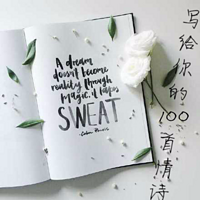 A dream
doesn't become
reality through
magic, it takes
SWEAT
写给你的100首情诗